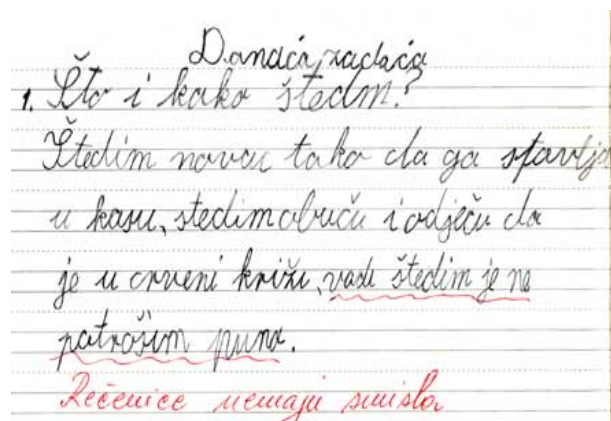 Danaća zadaća
1. Što i kako štedm?
Štedim novac tako da ga stavlja
u kasu, stedim obuču i odječu da
je u crveni križu, vade štedim je ne
patrošim puno.
Rečenice nemaju smisla